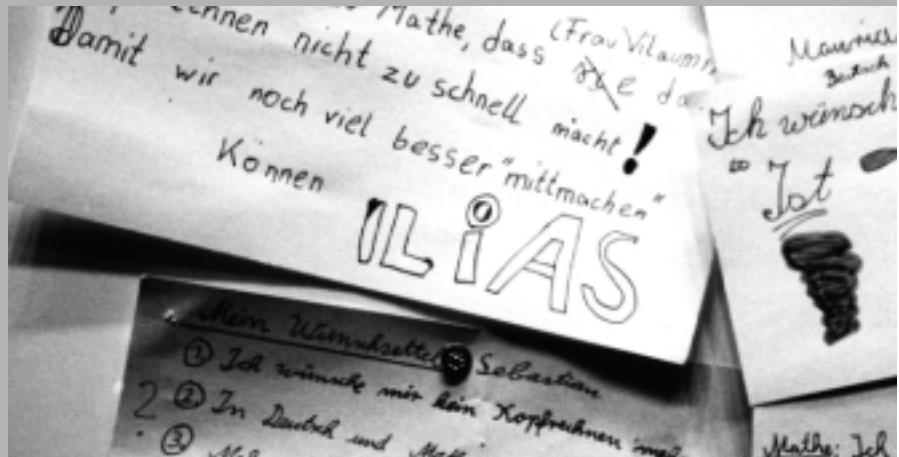 Mathe, dass (Frau Vilaum
nicht zu schnell macht!
Damit wir noch viel besser "mittmachen"
Können
ILiAS
Mein Wunschzettel Sebastian
① Ich wünsche mir kein Kopfrechnen
2 ② In Deutsch und
③
Maurice
Deutsch
Ich wünsch
Ist
Mathe: Ich